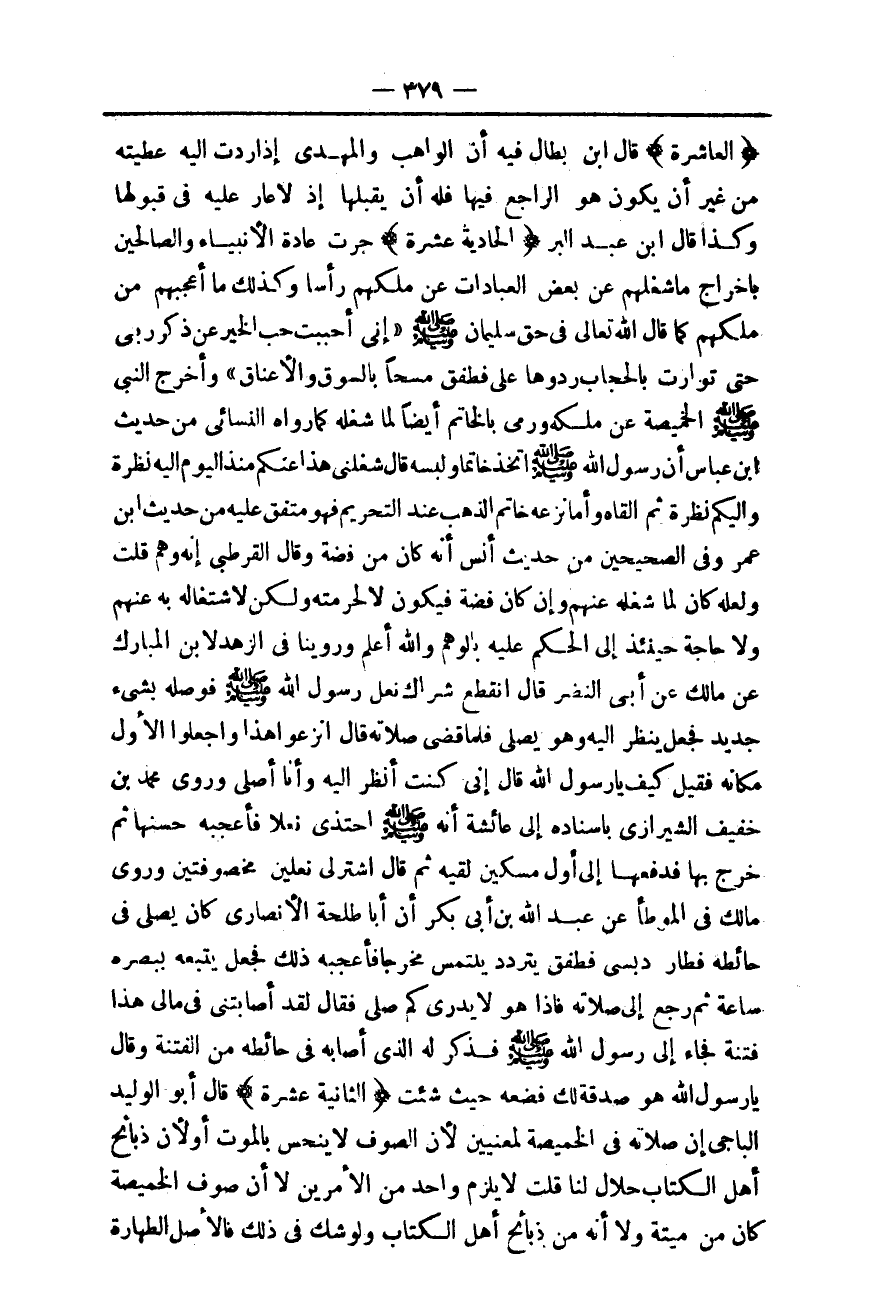 — ٣٧٩ —
﴿ العاشرة ﴾ قال ابن بطال فيه أن الواهب والمهدى إذا ردت اليه عطيته
من غير أن يكون هو الراجع فيها فله أن يقبلها إذ لا عار عليه فى قبولها
وكذا قال ابن عبد البر ﴿ الحادية عشرة ﴾ جرت عادة الأنبياء والصالحين
باخراج ماشغلهم عن بعض العبادات عن ملكهم رأسا وكذلك ما أعجبهم من
ملكهم كما قال الله تعالى فى حق سليمان ﷺ «إنى أحببت حب الخير عن ذكر ربى
حتى توارت بالحجاب ردوها على فطفق مسحاً بالسوق والأعناق» وأخرج النبى
ﷺ الخميصة عن ملكه ورمى بالخاتم أيضاً لما شغله كما رواه النسائى من حديث
ابن عباس أن رسول الله ﷺ اتخذ خاتما ولبسه قال شغلنى هذا عنكم منذ اليوم اليه نظرة
واليكم نظرة ثم القاه وأما نزعه خاتم الذهب عند التحريم فهو متفق عليه من حديث ابن
عمر وفى الصحيحين من حديث أنس أنه كان من فضة وقال القرطبى إنه وهم قلت
ولعله كان لما شغله عنهم وإن كان فضة فيكون لا لحرمته ولكن لاشتغاله به عنهم
ولا حاجة حينئذ إلى الحكم عليه بالوهم والله أعلم وروينا فى الزهد لابن المبارك
عن مالك عن أبى النضر قال انقطع شراك نعل رسول الله ﷺ فوصله بشىء
جديد فجعل ينظر اليه وهو يصلى فلما قضى صلاته قال انزعوا هذا واجعلوا الأول
مكانه فقيل كيف يارسول الله قال إنى كنت أنظر اليه وأنا أصلى وروى محمد بن
خفيف الشيرازى باسناده إلى عائشة أنه ﷺ احتذى نعلا فأعجبه حسنها ثم
خرج بها فدفعها إلى أول مسكين لقيه ثم قال اشتر لى نعلين مخصوفتين وروى
مالك فى الموطأ عن عبد الله بن أبى بكر أن أبا طلحة الأنصارى كان يصلى فى
حائطه فطار دبسى فطفق يتردد يلتمس مخرجا فأعجبه ذلك فجعل يتبعه ببصره
ساعة ثم رجع إلى صلاته فاذا هو لا يدرى كم صلى فقال لقد أصابتنى فى مالى هذا
فتنة فجاء إلى رسول الله ﷺ فذكر له الذى أصابه فى حائطه من الفتنة وقال
يارسول الله هو صدقة لك فضعه حيث شئت ﴿ الثانية عشرة ﴾ قال أبو الوليد
الباجى إن صلاته فى الخميصة لمعنيين لأن الصوف لا ينجس بالموت أولأن ذبائح
أهل الكتاب حلال لنا قلت لا يلزم واحد من الأمرين لا أن صوف الخميصة
كان من ميتة ولا أنه من ذبائح أهل الكتاب ولو شك فى ذلك فالأصل الطهارة